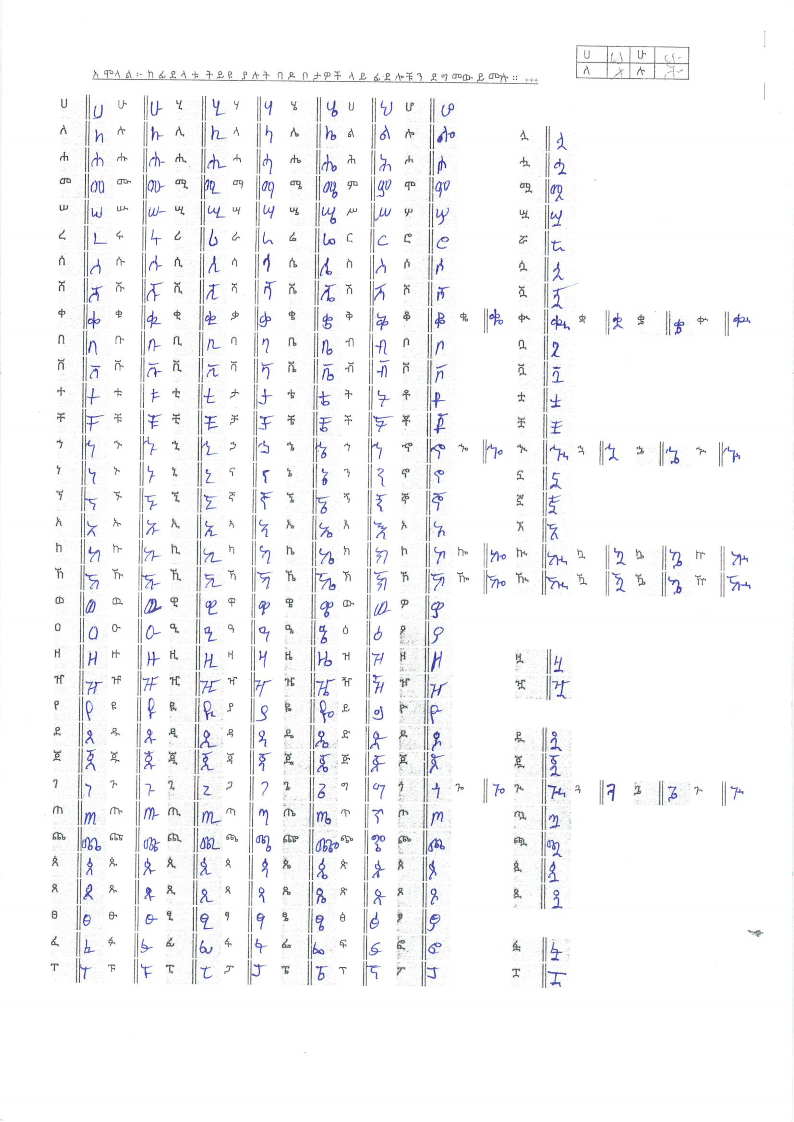 ሀ ሀ ሁ ሁ
ለ ለ ሉ ሉ
አሞላል፦ ከፊደላቱ ትይዩ ያሉት ባዶ ቦታዎች ላይ ፊደሎቹን ደግመው ይሙሉ። ...
ሀ ሀ ሁ ሁ ሂ ሂ ሃ ሃ ሄ ሄ ህ ህ ሆ ሆ
ለ ለ ሉ ሉ ሊ ሊ ላ ላ ሌ ሌ ል ል ሎ ሎ ሏ ሏ
ሐ ሐ ሑ ሑ ሒ ሒ ሓ ሓ ሔ ሔ ሕ ሕ ሖ ሖ ሗ ሗ
መ መ ሙ ሙ ሚ ሚ ማ ማ ሜ ሜ ም ም ሞ ሞ ሟ ሟ
ሠ ሠ ሡ ሡ ሢ ሢ ሣ ሣ ሤ ሤ ሥ ሥ ሦ ሦ ሧ ሧ
ረ ረ ሩ ሩ ሪ ሪ ራ ራ ሬ ሬ ር ር ሮ ሮ ሯ ሯ
ሰ ሰ ሱ ሱ ሲ ሲ ሳ ሳ ሴ ሴ ስ ስ ሶ ሶ ሷ ሷ
ሸ ሸ ሹ ሹ ሺ ሺ ሻ ሻ ሼ ሼ ሽ ሽ ሾ ሾ ሿ ሿ
ቀ ቀ ቁ ቁ ቂ ቂ ቃ ቃ ቄ ቄ ቅ ቅ ቆ ቆ ቈ ቈ ቊ ቊ ቋ ቋ ቌ ቌ ቍ ቍ
በ በ ቡ ቡ ቢ ቢ ባ ባ ቤ ቤ ብ ብ ቦ ቦ ቧ ቧ
ቨ ቨ ቩ ቩ ቪ ቪ ቫ ቫ ቬ ቬ ቭ ቭ ቮ ቮ ቯ ቯ
ተ ተ ቱ ቱ ቲ ቲ ታ ታ ቴ ቴ ት ት ቶ ቶ ቷ ቷ
ቸ ቸ ቹ ቹ ቺ ቺ ቻ ቻ ቼ ቼ ች ች ቾ ቾ ቿ ቿ
ኀ ኀ ኁ ኁ ኂ ኂ ኃ ኃ ኄ ኄ ኅ ኅ ኆ ኆ ኈ ኈ ኊ ኊ ኋ ኋ ኌ ኌ ኍ ኍ
ነ ነ ኑ ኑ ኒ ኒ ና ና ኔ ኔ ን ን ኖ ኖ ኗ ኗ
ኘ ኘ ኙ ኙ ኚ ኚ ኛ ኛ ኜ ኜ ኝ ኝ ኞ ኞ ኟ ኟ
አ አ ኡ ኡ ኢ ኢ ኣ ኣ ኤ ኤ እ እ ኦ ኦ ኧ ኧ
ከ ከ ኩ ኩ ኪ ኪ ካ ካ ኬ ኬ ክ ክ ኮ ኮ ኰ ኰ ኲ ኲ ኳ ኳ ኴ ኴ ኵ ኵ
ኸ ኸ ኹ ኹ ኺ ኺ ኻ ኻ ኼ ኼ ኽ ኽ ኾ ኾ ዀ ዀ ዂ ዂ ዃ ዃ ዄ ዄ ዅ ዅ
ወ ወ ዉ ዉ ዊ ዊ ዋ ዋ ዌ ዌ ው ው ዎ ዎ
ዐ ዐ ዑ ዑ ዒ ዒ ዓ ዓ ዔ ዔ ዕ ዕ ዖ ዖ
ዘ ዘ ዙ ዙ ዚ ዚ ዛ ዛ ዜ ዜ ዝ ዝ ዞ ዞ ዟ ዟ
ዠ ዠ ዡ ዡ ዢ ዢ ዣ ዣ ዤ ዤ ዥ ዥ ዦ ዦ ዧ ዧ
የ የ ዩ ዩ ዪ ዪ ያ ያ ዬ ዬ ይ ይ ዮ ዮ
ደ ደ ዱ ዱ ዲ ዲ ዳ ዳ ዴ ዴ ድ ድ ዶ ዶ ዷ ዷ
ጀ ጀ ጁ ጁ ጂ ጂ ጃ ጃ ጄ ጄ ጅ ጅ ጆ ጆ ጇ ጇ
ገ ገ ጉ ጉ ጊ ጊ ጋ ጋ ጌ ጌ ግ ግ ጎ ጎ ጐ ጐ ጒ ጒ ጓ ጓ ጔ ጔ ጕ ጕ
ጠ ጠ ጡ ጡ ጢ ጢ ጣ ጣ ጤ ጤ ጥ ጥ ጦ ጦ ጧ ጧ
ጨ ጨ ጩ ጩ ጪ ጪ ጫ ጫ ጬ ጬ ጭ ጭ ጮ ጮ ጯ ጯ
ጰ ጰ ጱ ጱ ጲ ጲ ጳ ጳ ጴ ጴ ጵ ጵ ጶ ጶ ጷ ጷ
ጸ ጸ ጹ ጹ ጺ ጺ ጻ ጻ ጼ ጼ ጽ ጽ ጾ ጾ ጿ ጿ
ፀ ፀ ፁ ፁ ፂ ፂ ፃ ፃ ፄ ፄ ፅ ፅ ፆ ፆ
ፈ ፈ ፉ ፉ ፊ ፊ ፋ ፋ ፌ ፌ ፍ ፍ ፎ ፎ ፏ ፏ
ፐ ፐ ፑ ፑ ፒ ፒ ፓ ፓ ፔ ፔ ፕ ፕ ፖ ፖ ፗ ፗ